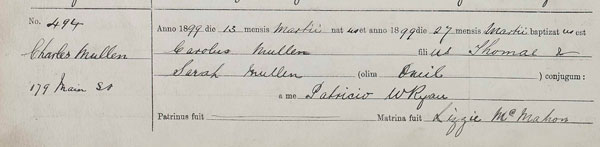 No. 494
Charles Mullen
179 Main St
Anno 1899 die 13 mensis Martii nat us et anno 1899 die 27 mensis Martii baptizat us est
Carolus Mullen filius Thomae &
Sarah Mullen (olim Oneil ) conjugum:
a me Patricio W Ryan
Patrinus fuit Matrina fuit Lizzie McMahon